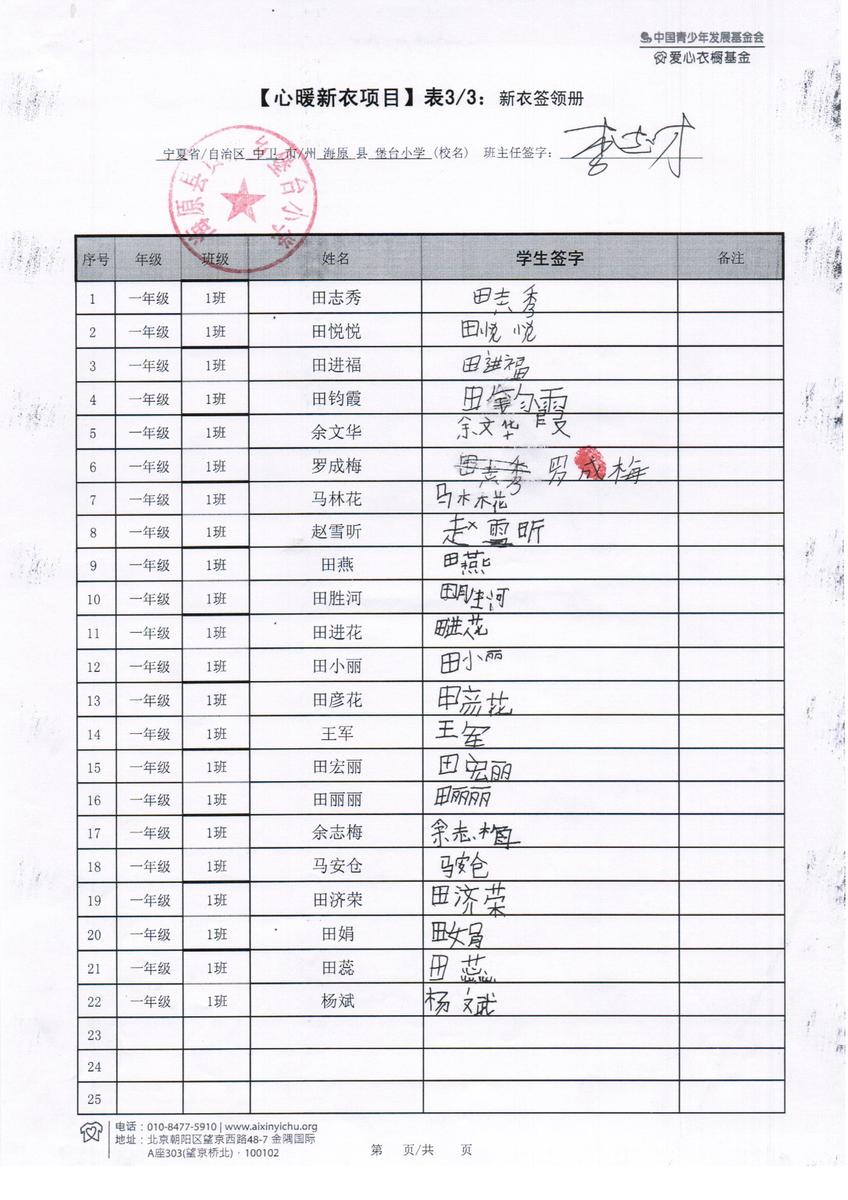 中国青少年发展基金会
爱心衣橱基金
【心暖新衣项目】表3/3：新衣签领册
宁夏省/自治区 中卫 市/州 海原 县 堡台小学（校名） 班主任签字：
序号 年级 班级 姓名 学生签字 备注
1 一年级 1班 田志秀 田志秀
2 一年级 1班 田悦悦 田悦悦
3 一年级 1班 田进福 田进福
4 一年级 1班 田钧霞 田钧霞
5 一年级 1班 余文华 余文华
6 一年级 1班 罗成梅 田志秀 罗成梅
7 一年级 1班 马林花 马林花
8 一年级 1班 赵雪昕 赵雪昕
9 一年级 1班 田燕 田燕
10 一年级 1班 田胜河 田胜河
11 一年级 1班 田进花 田进花
12 一年级 1班 田小丽 田小丽
13 一年级 1班 田彦花 田彦花
14 一年级 1班 王军 王军
15 一年级 1班 田宏丽 田宏丽
16 一年级 1班 田丽丽 田丽丽
17 一年级 1班 余志梅 余志梅
18 一年级 1班 马安仓 马安仓
19 一年级 1班 田济荣 田济荣
20 一年级 1班 田娟 田娟
21 一年级 1班 田蕊 田蕊
22 一年级 1班 杨斌 杨斌
23
24
25
电话：010-8477-5910 | www.aixinyichu.org
地址：北京朝阳区望京西路48-7 金隅国际
A座303(望京桥北)·100102
第 页/共 页